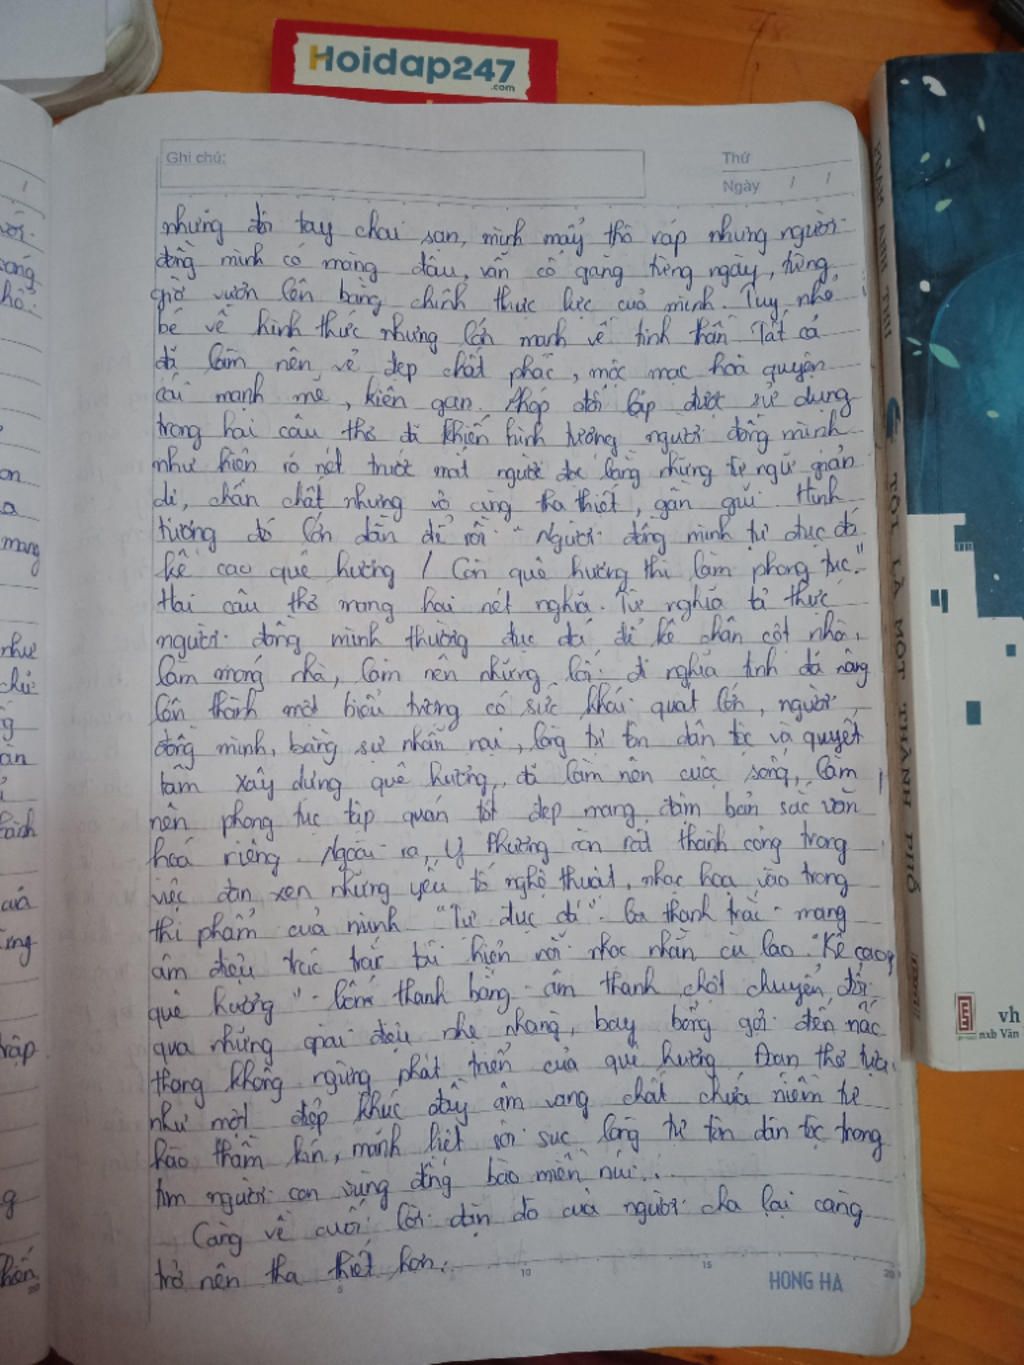 Hoidap247
.com
Ghi chú:
Thứ
Ngày / /
những đôi tay chai sạn, mình mẩy thô ráp nhưng người
đồng mình có màng đâu, vẫn cố gắng từng ngày, từng
giờ vươn lên bằng chính thực lực của mình. Tuy nhỏ
bé về hình thức nhưng lớn mạnh về tinh thần. Tất cả
đã làm nên vẻ đẹp chất phác, mộc mạc hoà quyện
cái mạnh mẽ, kiên gan. Phép đối lập được sử dụng
trong hai câu thơ đã khiến hình tượng người đồng mình
như hiện rõ nét trước mắt người đọc bằng những từ ngữ giản
dị, chân chất nhưng vô cùng tha thiết, gần gũi. Hình
tượng đó lớn dần để rồi "Người đồng mình tự đục đá
kê cao quê hương / Còn quê hương thì làm phong tục."
Hai câu thơ mang hai nét nghĩa. Từ nghĩa tả thực
người đồng mình thường đục đá để kê chân cột nhà,
làm móng nhà, làm nên những lối đi nghĩa tình đã nâng
lên thành một biểu tượng có sức khái quát lớn, người
đồng mình, bằng sự nhẫn nại, lòng tự tôn dân tộc và quyết
tâm xây dựng quê hương, đã làm nên cuộc sống, làm
nên phong tục tập quán tốt đẹp mang đậm bản sắc văn
hoá riêng. Ngoài ra, Y Phương còn rất thành công trong
việc đan xen những yếu tố nghệ thuật, nhạc hoạ vào trong
thi phẩm của mình "Tự đục đá". Ba thanh trắc mang
âm điệu trúc trắc tái hiện nỗi nhọc nhằn cù lao. "Kê cao
quê hương" - thanh bằng - âm thanh chợt chuyển đổi
qua những giai điệu nhẹ nhàng, bay bổng gợi đến nấc
thang không ngừng phát triển của quê hương. Đoạn thơ tựa
như một điệp khúc đầy âm vang chất chứa niềm tự
hào thầm kín, mãnh liệt với sục lòng tự tôn dân tộc trong
tim người con vùng đồng bào miền núi...
Càng về cuối lời dặn dò của người cha lại càng
trở nên tha thiết hơn.
5 10 15 20
HONG HA
PHẠM ANH THƯ
TÔI LÀ MỘT THÀNH PHỐ
vh
nxb Văn